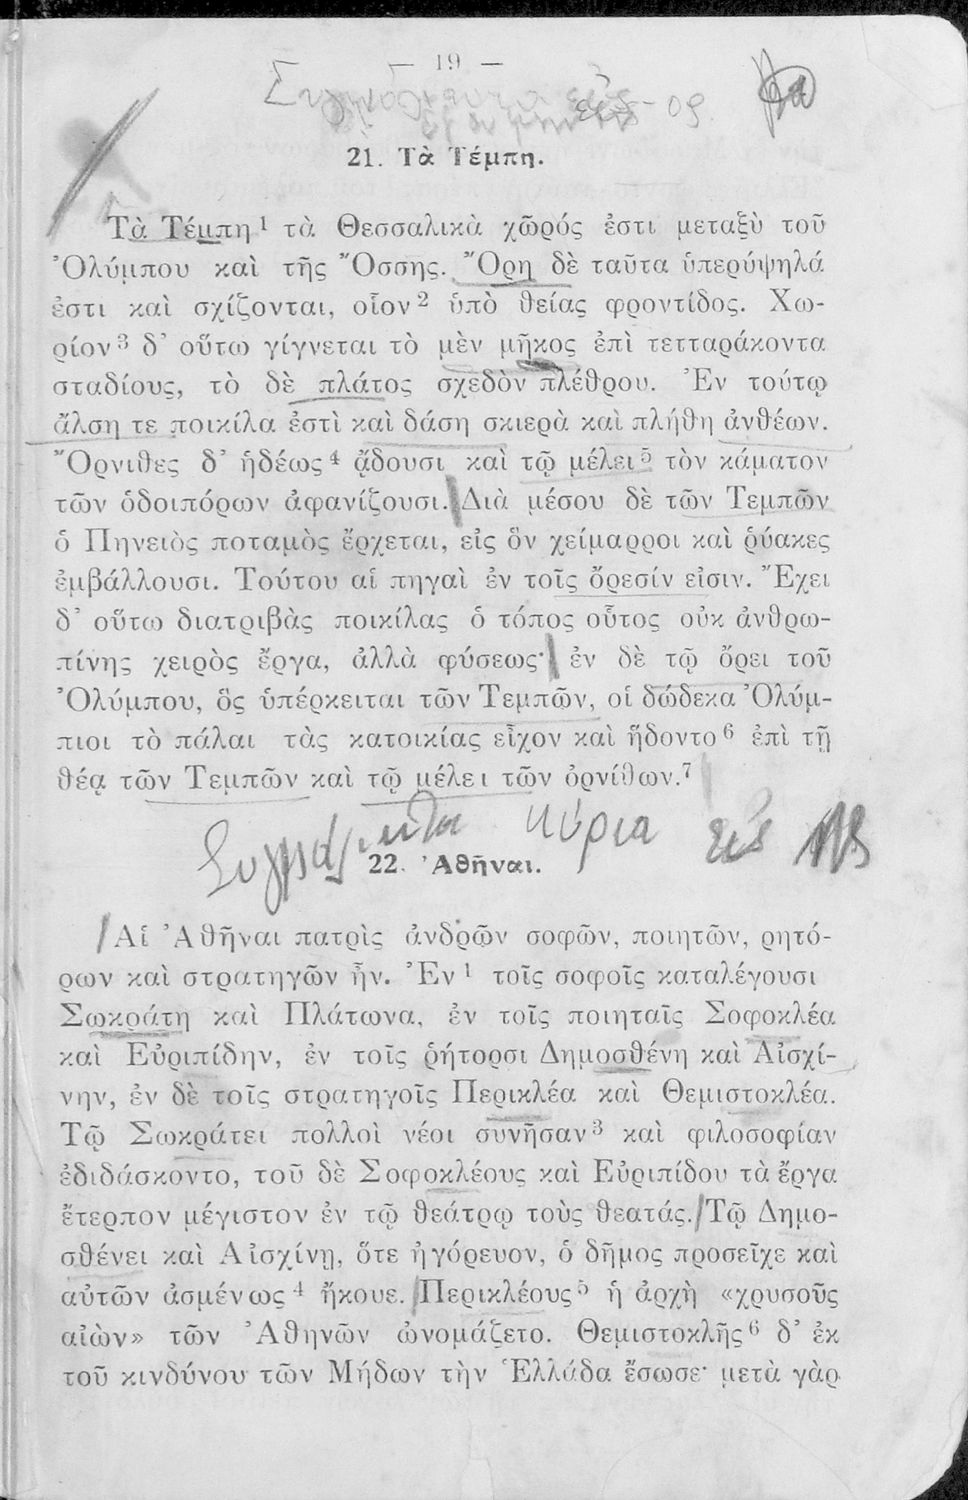 — 19 —
εις -ος.
21. Τὰ Τέμπη.
Τὰ Τέμπη¹ τὰ Θεσσαλικὰ χῶρός ἐστι μεταξὺ τοῦ
Ὀλύμπου καὶ τῆς Ὄσσης. Ὄρη δὲ ταῦτα ὑπερύψηλά
ἐστι καὶ σχίζονται, οἷον² ὑπὸ θείας φροντίδος. Χω-
ρίον³ δ’ οὕτω γίγνεται τὸ μὲν μῆκος ἐπὶ τετταράκοντα
σταδίους, τὸ δὲ πλάτος σχεδὸν πλέθρου. Ἐν τούτῳ
ἄλση τε ποικίλα ἐστὶ καὶ δάση σκιερὰ καὶ πλήθη ἀνθέων.
Ὄρνιθες δ’ ἡδέως⁴ ᾄδουσι καὶ τῷ μέλει⁵ τὸν κάματον
τῶν ὁδοιπόρων ἀφανίζουσι. Διὰ μέσου δὲ τῶν Τεμπῶν
ὁ Πηνειὸς ποταμὸς ἔρχεται, εἰς ὃν χείμαρροι καὶ ῥύακες
ἐμβάλλουσι. Τούτου αἱ πηγαὶ ἐν τοῖς ὄρεσίν εἰσιν. Ἔχει
δ’ οὕτω διατριβὰς ποικίλας ὁ τόπος οὗτος οὐκ ἀνθρω-
πίνης χειρὸς ἔργα, ἀλλὰ φύσεως· ἐν δὲ τῷ ὄρει τοῦ
Ὀλύμπου, ὃς ὑπέρκειται τῶν Τεμπῶν, οἱ δώδεκα Ὀλύμ-
πιοι τὸ πάλαι τὰς κατοικίας εἶχον καὶ ἥδοντο⁶ ἐπὶ τῇ
θέᾳ τῶν Τεμπῶν καὶ τῷ μέλει τῶν ὀρνίθων.⁷
κύρια εις ης
22. Ἀθῆναι.
Αἱ Ἀθῆναι πατρὶς ἀνδρῶν σοφῶν, ποιητῶν, ρητό-
ρων καὶ στρατηγῶν ἦν. Ἐν¹ τοῖς σοφοῖς καταλέγουσι
Σωκράτη καὶ Πλάτωνα, ἐν τοῖς ποιηταῖς Σοφοκλέα
καὶ Εὐριπίδην, ἐν τοῖς ῥήτορσι Δημοσθένη καὶ Αἰσχί-
νην, ἐν δὲ τοῖς στρατηγοῖς Περικλέα καὶ Θεμιστοκλέα.
Τῷ Σωκράτει πολλοὶ νέοι συνῆσαν³ καὶ φιλοσοφίαν
ἐδιδάσκοντο, τοῦ δὲ Σοφοκλέους καὶ Εὐριπίδου τὰ ἔργα
ἔτερπον μέγιστον ἐν τῷ θεάτρῳ τοὺς θεατάς. Τῷ Δημο-
σθένει καὶ Αἰσχίνῃ, ὅτε ἠγόρευον, ὁ δῆμος προσεῖχε καὶ
αὐτῶν ἀσμένως⁴ ἤκουε. Περικλέους⁵ ἡ ἀρχὴ «χρυσοῦς
αἰὼν» τῶν Ἀθηνῶν ὠνομάζετο. Θεμιστοκλῆς⁶ δ’ ἐκ
τοῦ κινδύνου τῶν Μήδων τὴν Ἑλλάδα ἔσωσε· μετὰ γὰρ